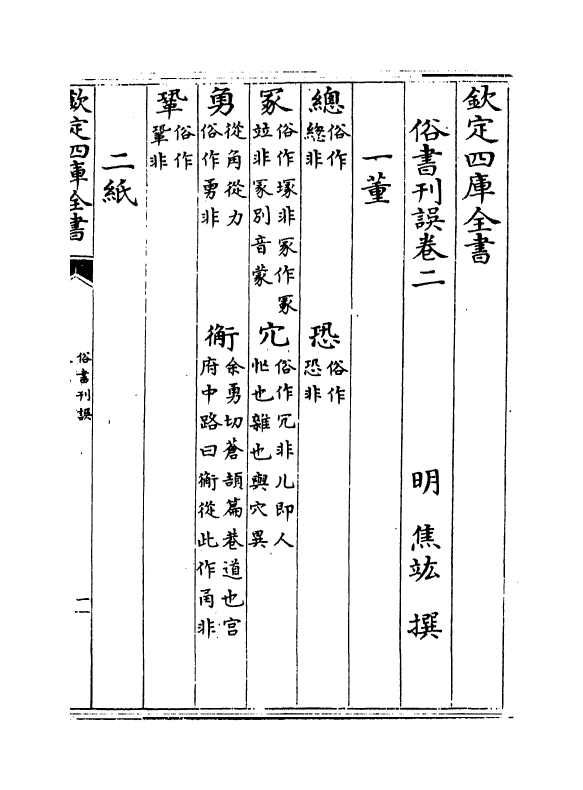 欽定四庫全書
俗書刊誤卷二
明 焦竑 撰
一董
總 俗作緫非 恐 俗作恐非
冢 俗作塚非冢作冡竝非冡別音蒙 冗 俗作冗非儿即人忙也雜也與穴異
勇 從角從力俗作勇非 衕 余勇切蒼頡篇巷道也宮府中路曰衕從此作甬非
鞏 俗作鞏非
二紙
欽定四庫全書
俗書刊誤
一